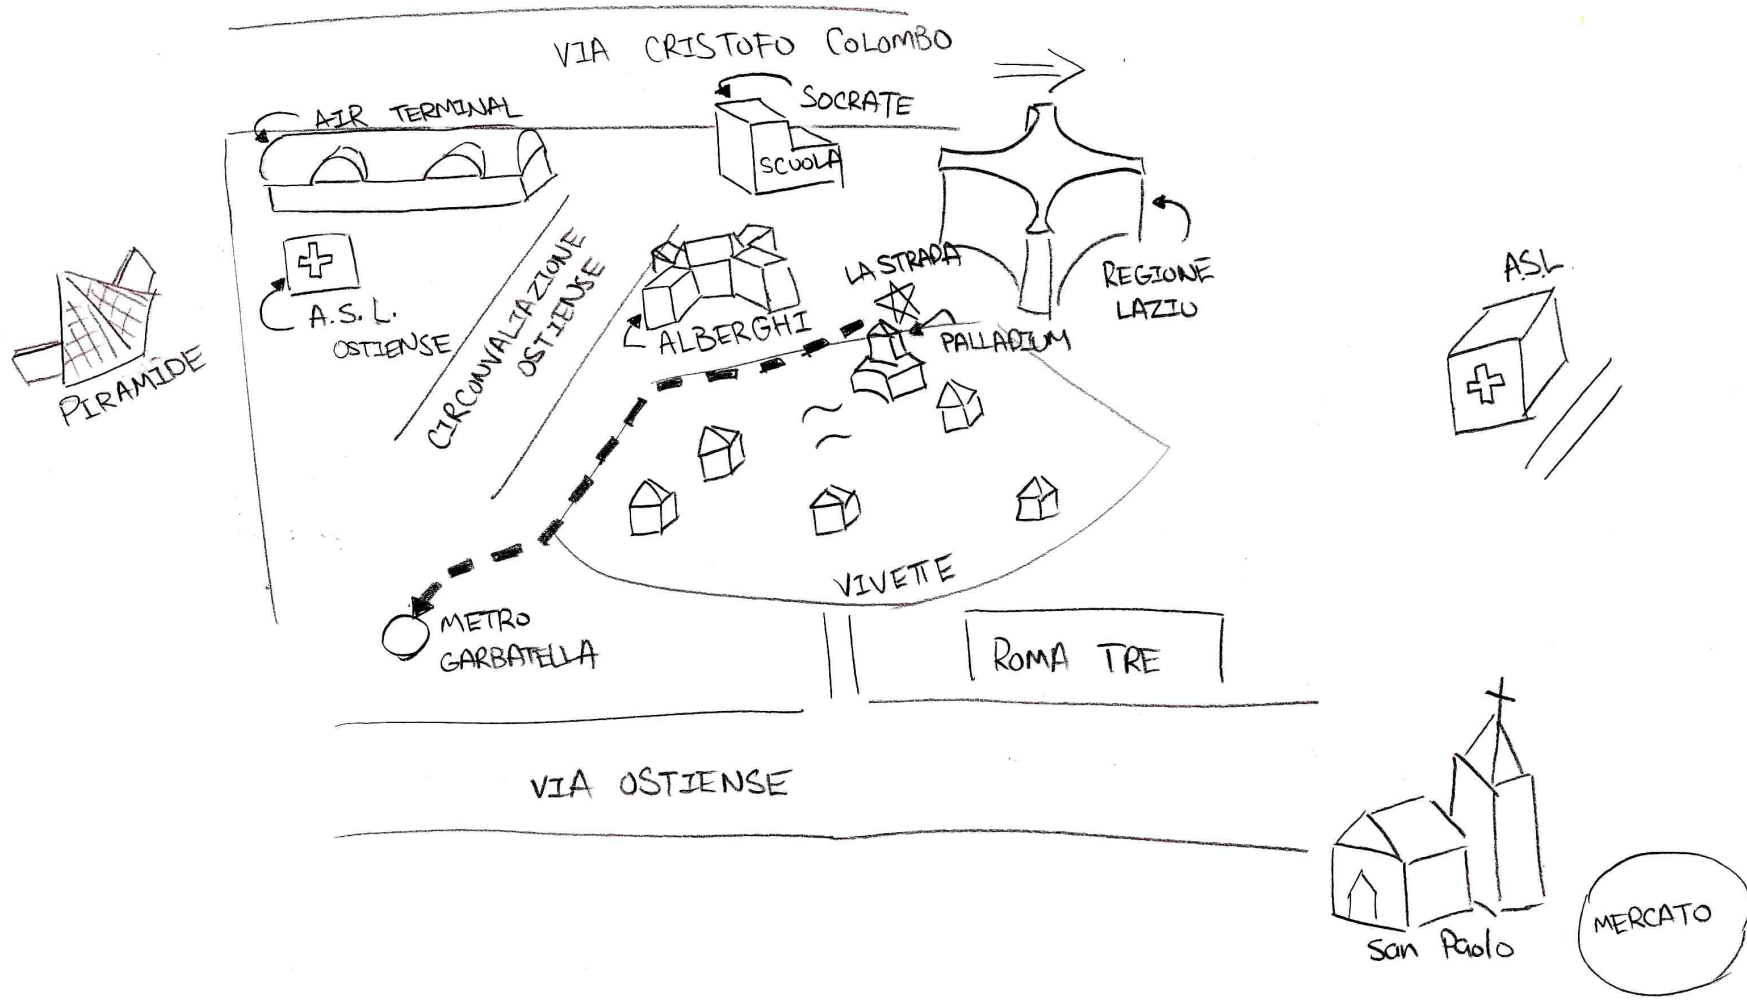 VIA CRISTOFO COLOMBO
AIR TERMINAL
SOCRATE
SCUOLA
A.S.L.
OSTIENSE
CIRCONVALIAZIONE
OSTIENSE
ALBERGHI
LA STRADA
PALLADIUM
REGIONE
LAZIO
ASL
PIRAMIDE
VIVETTE
METRO
GARBATELLA
ROMA TRE
VIA OSTIENSE
San Paolo
MERCATO